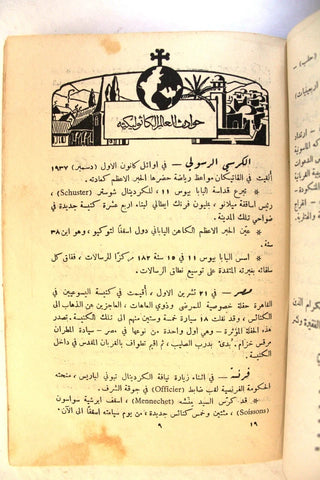 حوادث العالم الكاثوليكية
الكرسي الرسولي – في اوائل كانون الاول (دسمبر) ١٩٣٧
أُلقيت في الفاتيكان مواعظ رياضة حضرها الحبر الاعظم كعادته.
* تبرع قداسة البابا بيوس ١١، للكردينال شوستر (Schuster)،
رئيس اساقفة ميلانو، بمليون فرنك ايطالي لبناء اربع عشرة كنيسة جديدة في
ضواحي تلك المدينة.
* عيّن الحبر الاعظم الكاهن الياباني دول اسقفاً لتوكيو، وهو ابن ٣٨
سنة.
* اسس البابا بيوس ١١ في ١٥ سنة ١٨٢ مركزًا للرسالات، ففاق كل
سلفائه بغيرته المتقدة على توسيع نطاق الرسالات.
مصر – في ٣١ تشرين الاول، أُقيمت في كنيسة اليسوعيين في
القاهرة حفلة خصوصية للمرضى وذوي العاهات، العاجزين عن الذهاب الى
الكنيسة. وقد نقلت ١٨ سيارة خمسة وستين منهم الى تلك الكنيسة. تصدر
هذه الحفلة المؤثرة – وهي اول واحدة من نوعها في مصر – سيادة المطران
مرقس خزام، بدئ بدرب الصليب، ثم أقيم تطواف بالقربان المقدس في داخل
الكنيسة.
فرنسة – في اثناء زيارة نيافة الكردينال تبوني لباريس، منحته
الحكومة الفرنسية لقب ضابط (Officier) في جوقة الشرف.
* قد كرّس السيد بنّشه (Mennechet)، اسقف ابرشية سواسون
(Soissons)، مئتين وخمس كنائس جديدة، من يوم سيامته اسقفاً الى الآن.
٩
١٩
(حلب) –